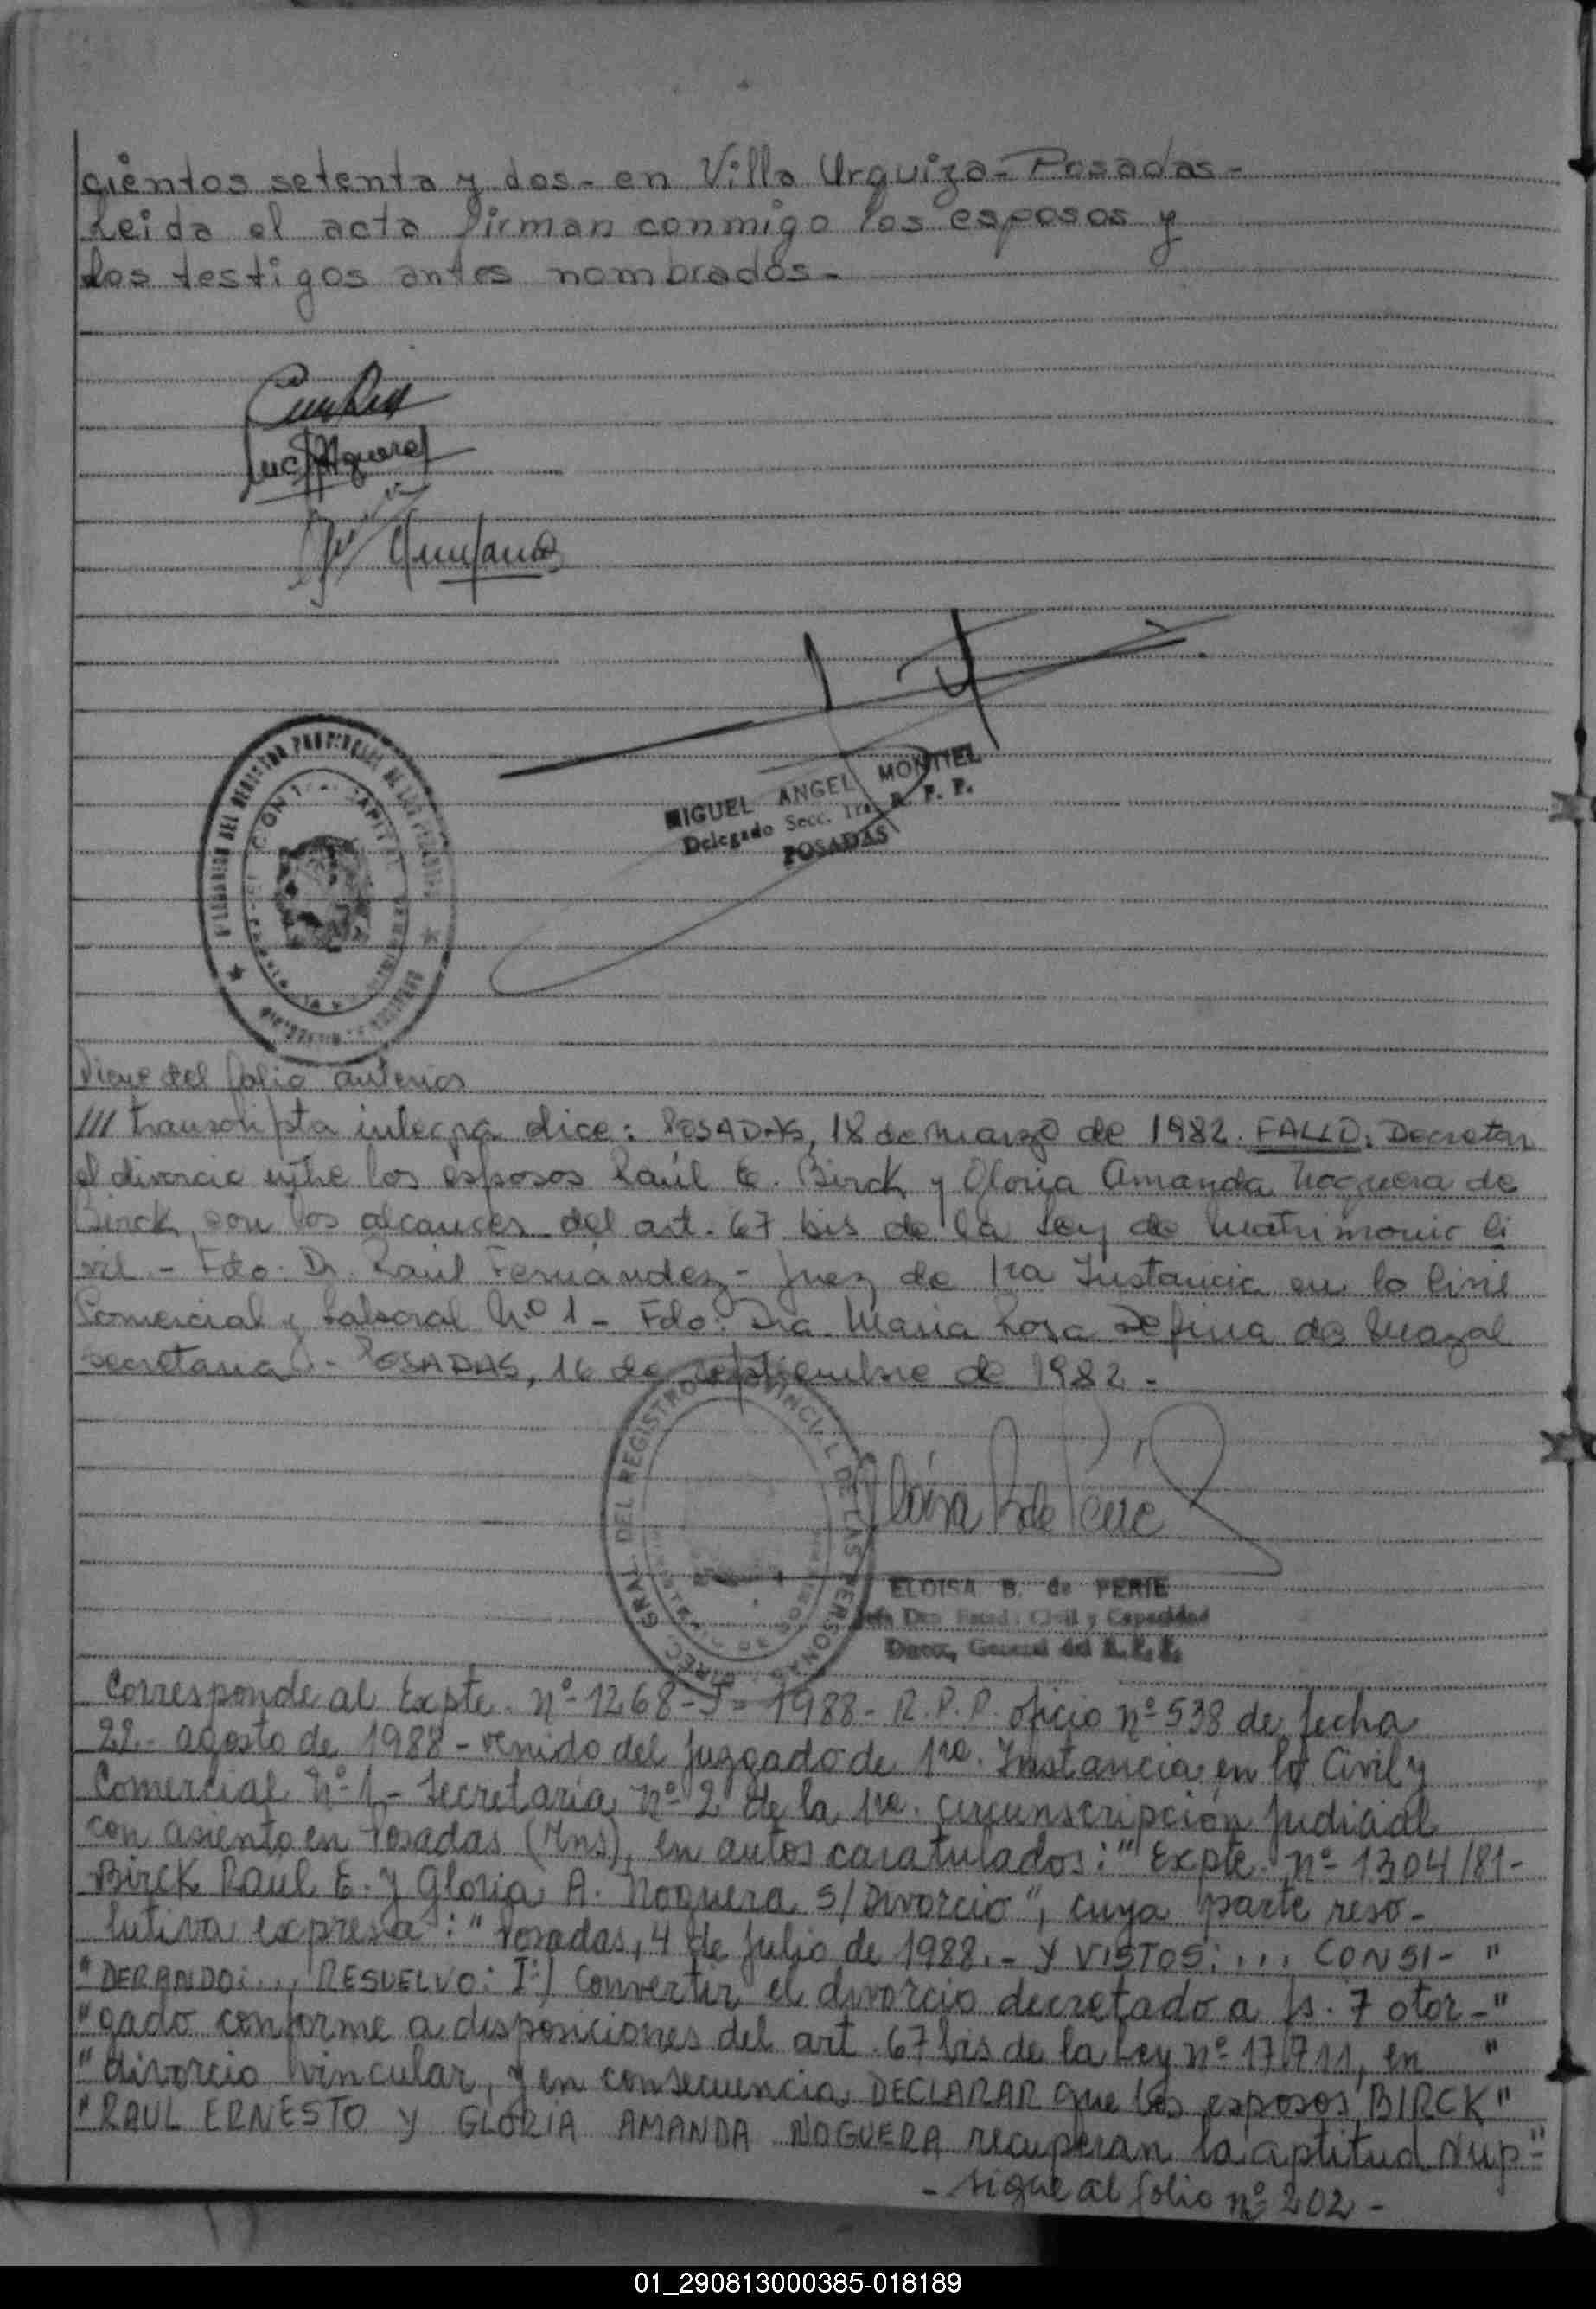 cientos setenta y dos - en Villa Urquiza - Posadas -
Leida el acta firman conmigo los esposos y
los testigos antes nombrados -
MIGUEL ANGEL MONTIEL
Delegado Secc. 1ra. R. P. P.
POSADAS
Viene del folio anterior
/// transcripta integra dice: POSADAS, 18 de marzo de 1982. FALLO: Decretar
el divorcio entre los esposos Raúl E. Birck y Gloria Amanda Noguera de
Birck, con los alcances del art. 67 bis de la Ley de Matrimonio Ci
vil - Fdo. Dr. Raúl Fernández - Juez de 1ra Instancia en lo Civil
Comercial y Laboral Nº 1 - Fdo: Dra. Maria Rosa de
Secretaria - POSADAS, 16 de septiembre de 1982 -
GRAL DEL REGISTRO PROVINCIAL DE LAS PERSONAS
ELOISA B. de PERIE
Civil y Capacidad
General del R. P. P.
Corresponde al Expte. nº 1268-J-1988 - R.P.P. oficio nº 538 de fecha
22 - agosto de 1988 - venido del Juzgado de 1ra. Instancia en lo Civil y
Comercial Nº 1 - Secretaría nº 2 de la 1ra. circunscripción Judicial
con asiento en Posadas (Mns), en autos caratulados: "Expte. nº 1304/81 -
Birck Raúl E. y Gloria A. Noguera S/Divorcio", cuya parte reso-
lutiva expresa: "Posadas, 4 de Julio de 1988. - Y VISTOS: ... CONSI- "
"DERANDO: ..., RESUELVO: Iº) Convertir el divorcio decretado a fs. 7 otor- "
"gado conforme a disposiciones del art. 67 bis de la Ley nº 17.711, en "
"divorcio vincular, y en consecuencia DECLARAR que los esposos BIRCK"
"RAUL ERNESTO Y GLORIA AMANDA NOGUERA recuperan la aptitud Nup-"
- sigue al folio nº 202 -
01_290813000385-018189